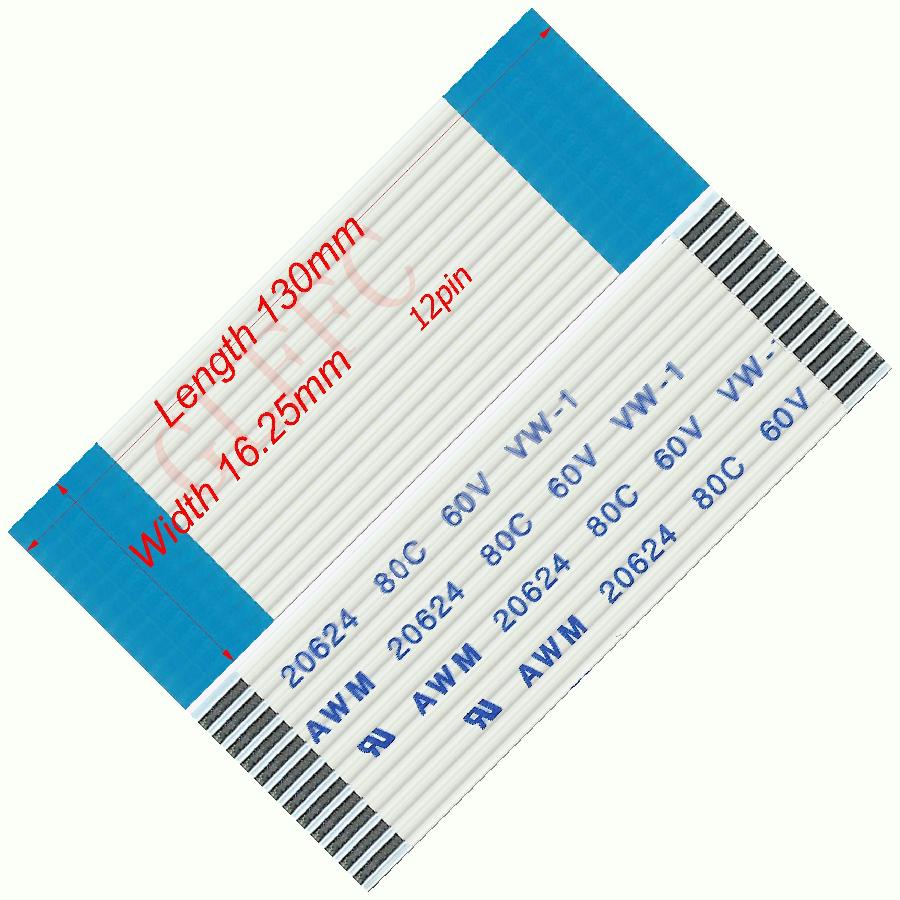 Length 130mm
Width 16.25mm
12pin
20624 80C 60V VW-1
AWM 20624 80C 60V VW-1
AWM 20624 80C 60V VW-
AWM 20624 80C 60V